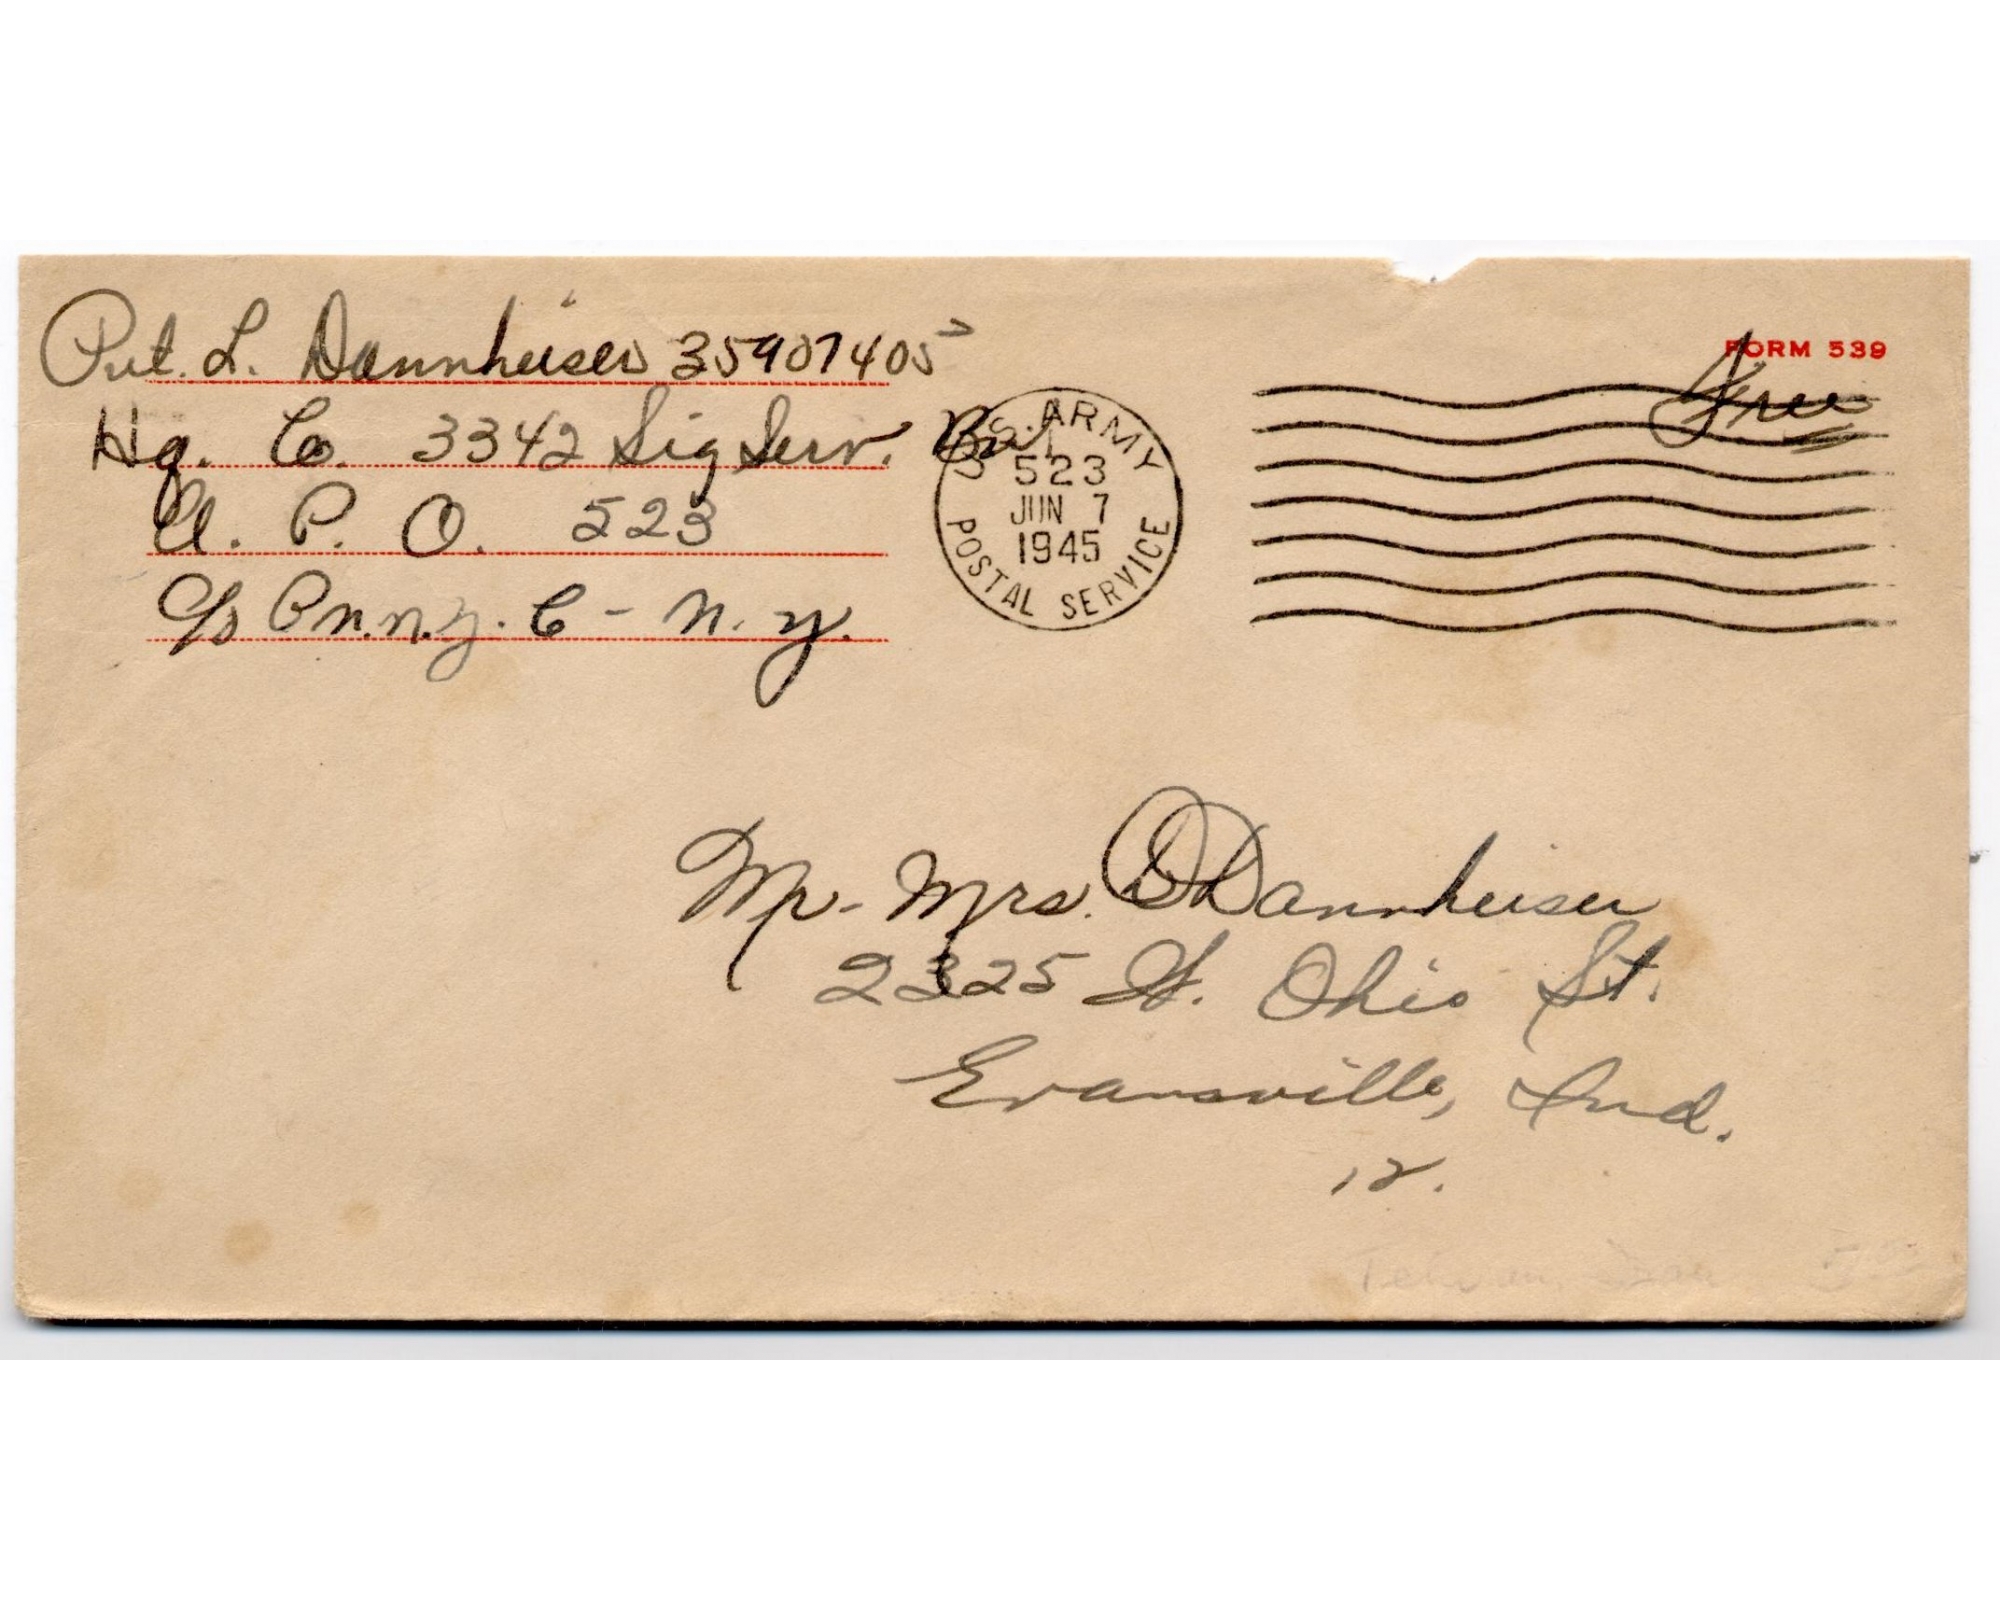 Pvt. L. Dannheiser 35907405
Hq. Co. 3342 Sig Serv. Bn
A. P. O. 523
c/o P.M. N.Y. C - N. Y.
U.S. ARMY
POSTAL SERVICE
1
523
JUN 7
1945
FORM 539
Free
Mr - Mrs. O Dannheiser
2325 W. Ohio St.
Evansville, Ind.
12.
Tehran, Iran